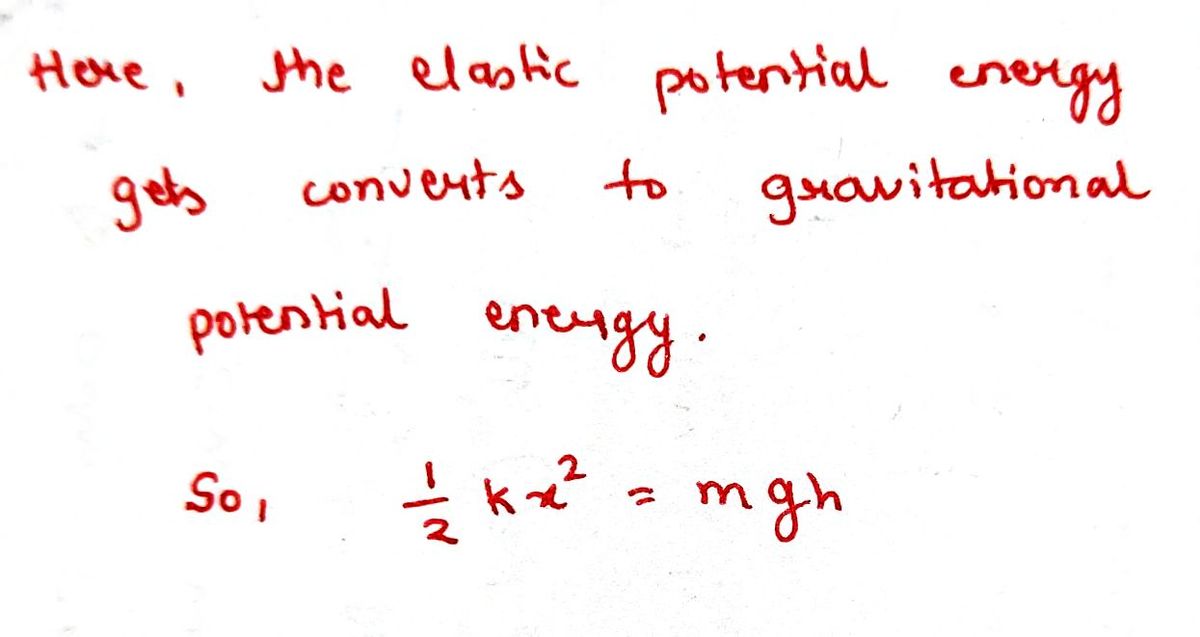 Here, the elastic potential energy
gets converts to gravitational
potential energy.
So, 1/2 kx² = mgh